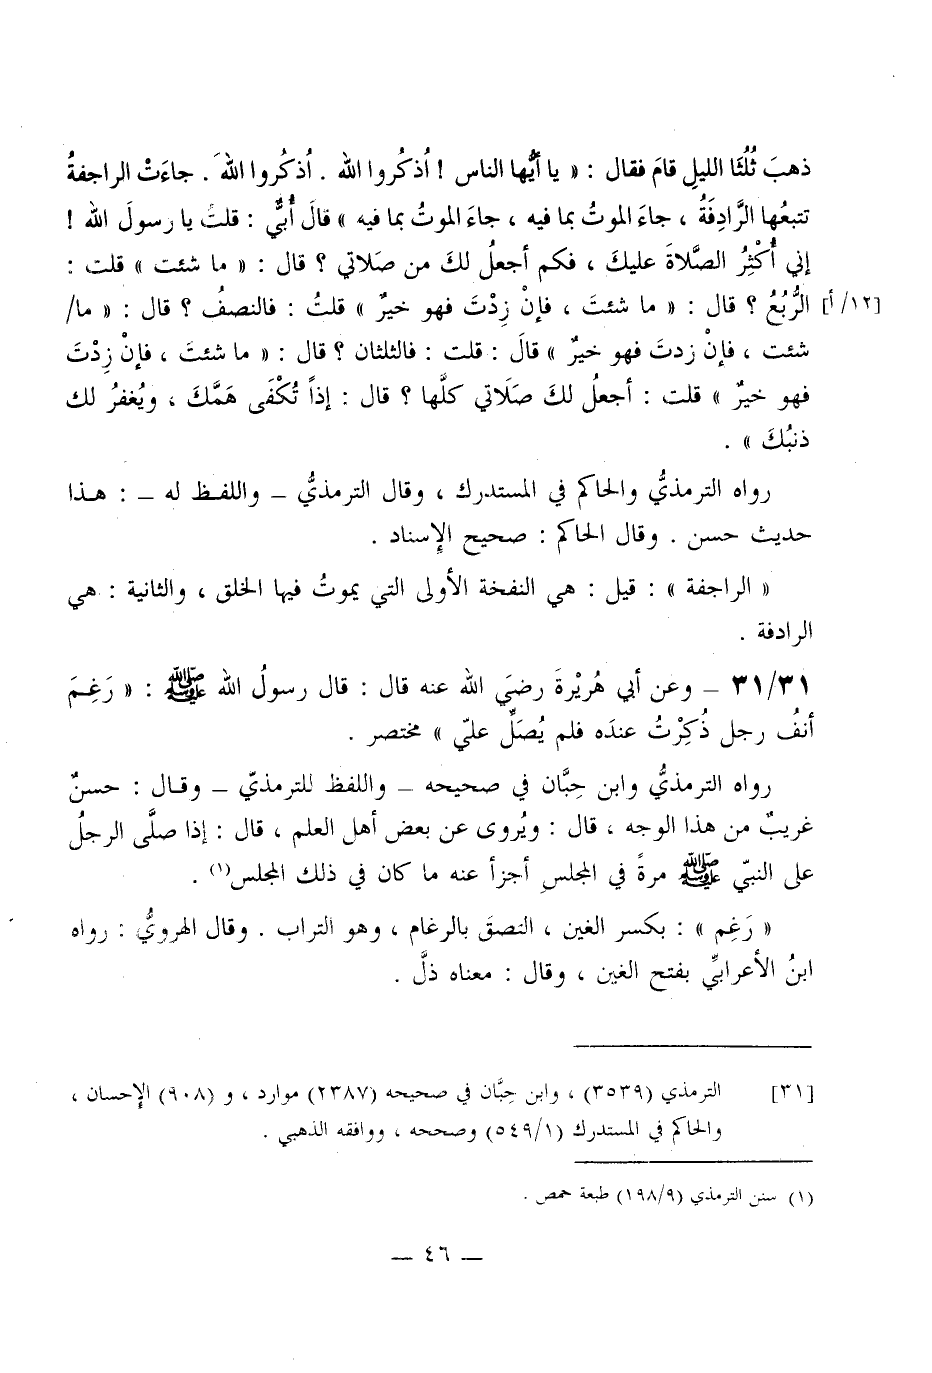 ذهبَ ثُلُثَا الليلِ قامَ فقال : « يا أيُّها الناس ! اُذكُروا الله . اُذكُروا اللهَ . جاءَتْ الراجفةُ
تتبعُها الرَّادِفَةُ ، جاءَ الموتُ بما فيه ، جاءَ الموتُ بما فيه » قالَ أُبيٌّ : قلتُ يا رسولَ الله !
إني أُكْثِرُ الصَّلاةَ عليكَ ، فكم أجعلُ لكَ من صَلاتي ؟ قال : « ما شئت » قلت :
[١٢/ أ] الرُّبُعُ ؟ قال : « ما شئتَ ، فإنْ زِدْتَ فهو خيرٌ » قلتُ : فالنصفُ ؟ قال : « ما/
شئت ، فإنْ زدتَ فهو خيرٌ » قالَ : قلت : فالثلثان ؟ قال : « ما شئتَ ، فإنْ زِدْتَ
فهو خيرٌ » قلت : أجعلُ لكَ صَلَاتي كلَّها ؟ قال : إذاً تُكْفَى هَمَّكَ ، ويُغفرُ لك
ذنبُكَ » .
رواه الترمذيُّ والحاكم في المستدرك ، وقال الترمذيُّ ــ واللفظ له ــ : هذا
حديث حسن . وقال الحاكم : صحيح الإسناد .
« الراجفة » : قيل : هي النفخة الأولى التي يموتُ فيها الخلق ، والثانية : هي
الرادفة .
٣١/٣١ ــ وعن أبي هُرَيْرةَ رضيَ الله عنه قال : قال رسولُ الله ﷺ : « رَغِمَ
أنفُ رجل ذُكِرْتُ عندَه فلم يُصَلِّ عليّ » مختصر .
رواه الترمذيُّ وابن حِبَّان في صحيحه ــ واللفظ للترمذيّ ــ وقال : حسنٌ
غريبٌ من هذا الوجه ، قال : ويُروى عن بعض أهل العلم ، قال : إذا صلَّى الرجلُ
على النبيّ ﷺ مرةً في المجلسِ أجزأ عنه ما كان في ذلك المجلس(١) .
« رَغِم » : بكسر الغين ، التصقَ بالرغام ، وهو التراب . وقال الهرويُّ : رواه
ابنُ الأعرابيِّ بفتح الغين ، وقال : معناه ذلَّ .
[٣١] الترمذي (٣٥٣٩) ، وابن حِبَّان في صحيحه (٢٣٨٧) موارد ، و (٩٠٨) الإحسان ،
والحاكم في المستدرك (٥٤٩/١) وصححه ، ووافقه الذهبي .
(١) سنن الترمذي (١٩٨/٩) طبعة حمص .
ــ ٤٦ ــ